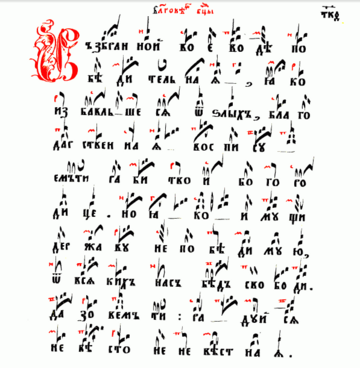 ВЪЗБРАН НОЙ ВО Е ВО ДѢ ПО
БѢ ДИ ТЕЛЬ НА Ѧ — , ꙖКО
ИЗ БАВЛЬ — ШЕ СѦ Ѿ ЅЛЫХЪ, БЛА ГО
ДАР СТВЕН НА Ѧ ВОС ПИ СУ —
ЕМЪ ТИ РА БИ ТВО И БО ГО РО
ДИ ЦЕ . НО Ꙗ — КО — И МУ ЩИ
ДЕР ЖА ВУ НЕ ПО БѢ ДИ МУ Ю,
Ѿ ВСѦ КИХЪ НАСЪ БѢДЪ СВО БО ДИ.
ДА ЗО ВЕМЪ ТИ : РА — ДУЙ СѦ
НЕ ВѢ СТО НЕ НЕ ВѢСТ НА Ѧ .